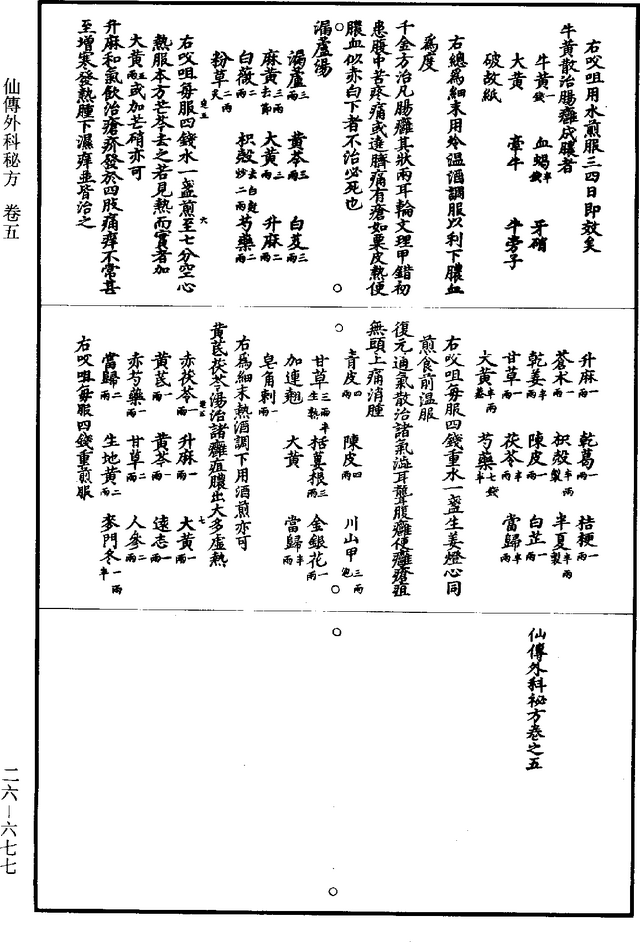 右㕮咀用水煎服三四日即效矣
牛黃散治腸癰成膿者
牛黃一錢 血蝎半錢 牙硝
大黃 牽牛 牛旁子
破故紙
右總爲細末用冷溫酒調服以利下膿血
爲度
千金方治凡腸癰其狀兩耳輪文理甲錯初
患腹中苦疼痛或遶臍痛有瘡如粟皮熱便
膿血似赤白下者不治必死也
漏蘆湯
漏蘆三兩 黃芩三兩 白芨三兩
麻黃去節二兩 大黃三兩 升麻二兩
白薇二兩 枳殼去白麩炒二兩 芍藥二兩
粉草炙二兩
右㕮咀每服四錢水一盞煎至七分空心
熱服本方芒芩去之若見熱而實者加
大黃兩或加芒硝亦可
升麻和氣飲治瘡疥發於四肢痛癢不常甚
至增寒發熱腫下濕癢並皆治之
升麻一兩 乾葛一兩 桔梗一兩
蒼朮一兩 枳殼半兩製 半夏半兩製
乾姜半兩 陳皮一兩 白芷一兩
甘草一兩 茯苓半兩 當歸半兩
大黃半兩蒸 芍藥七錢
右㕮咀每服四錢重水一盞生姜燈心同
煎食前溫服
復元通氣散治諸氣澁耳聾腹癰便癰瘡疽
無頭上痛消腫
青皮四兩 陳皮四兩 川山甲三兩炮
甘草三兩半生熟 括蔞根三兩 金銀花一兩
加連翹 大黃 當歸半兩
皂角刺一兩
右爲細末熱酒調下用酒煎亦可
黃芪茯苓湯治諸癰疽膿出大多虛熱
赤茯苓一兩 升麻一兩 大黃一兩
黃芪一兩 黃芩一兩 遠志一兩
赤芍藥一兩 甘草二兩 人參二兩
當歸二兩 生地黃二兩 麥門冬一兩半
右㕮咀每服四錢重煎服
仙傳外科祕方卷之五
仙傳外科秘方 卷五
二六—六七七